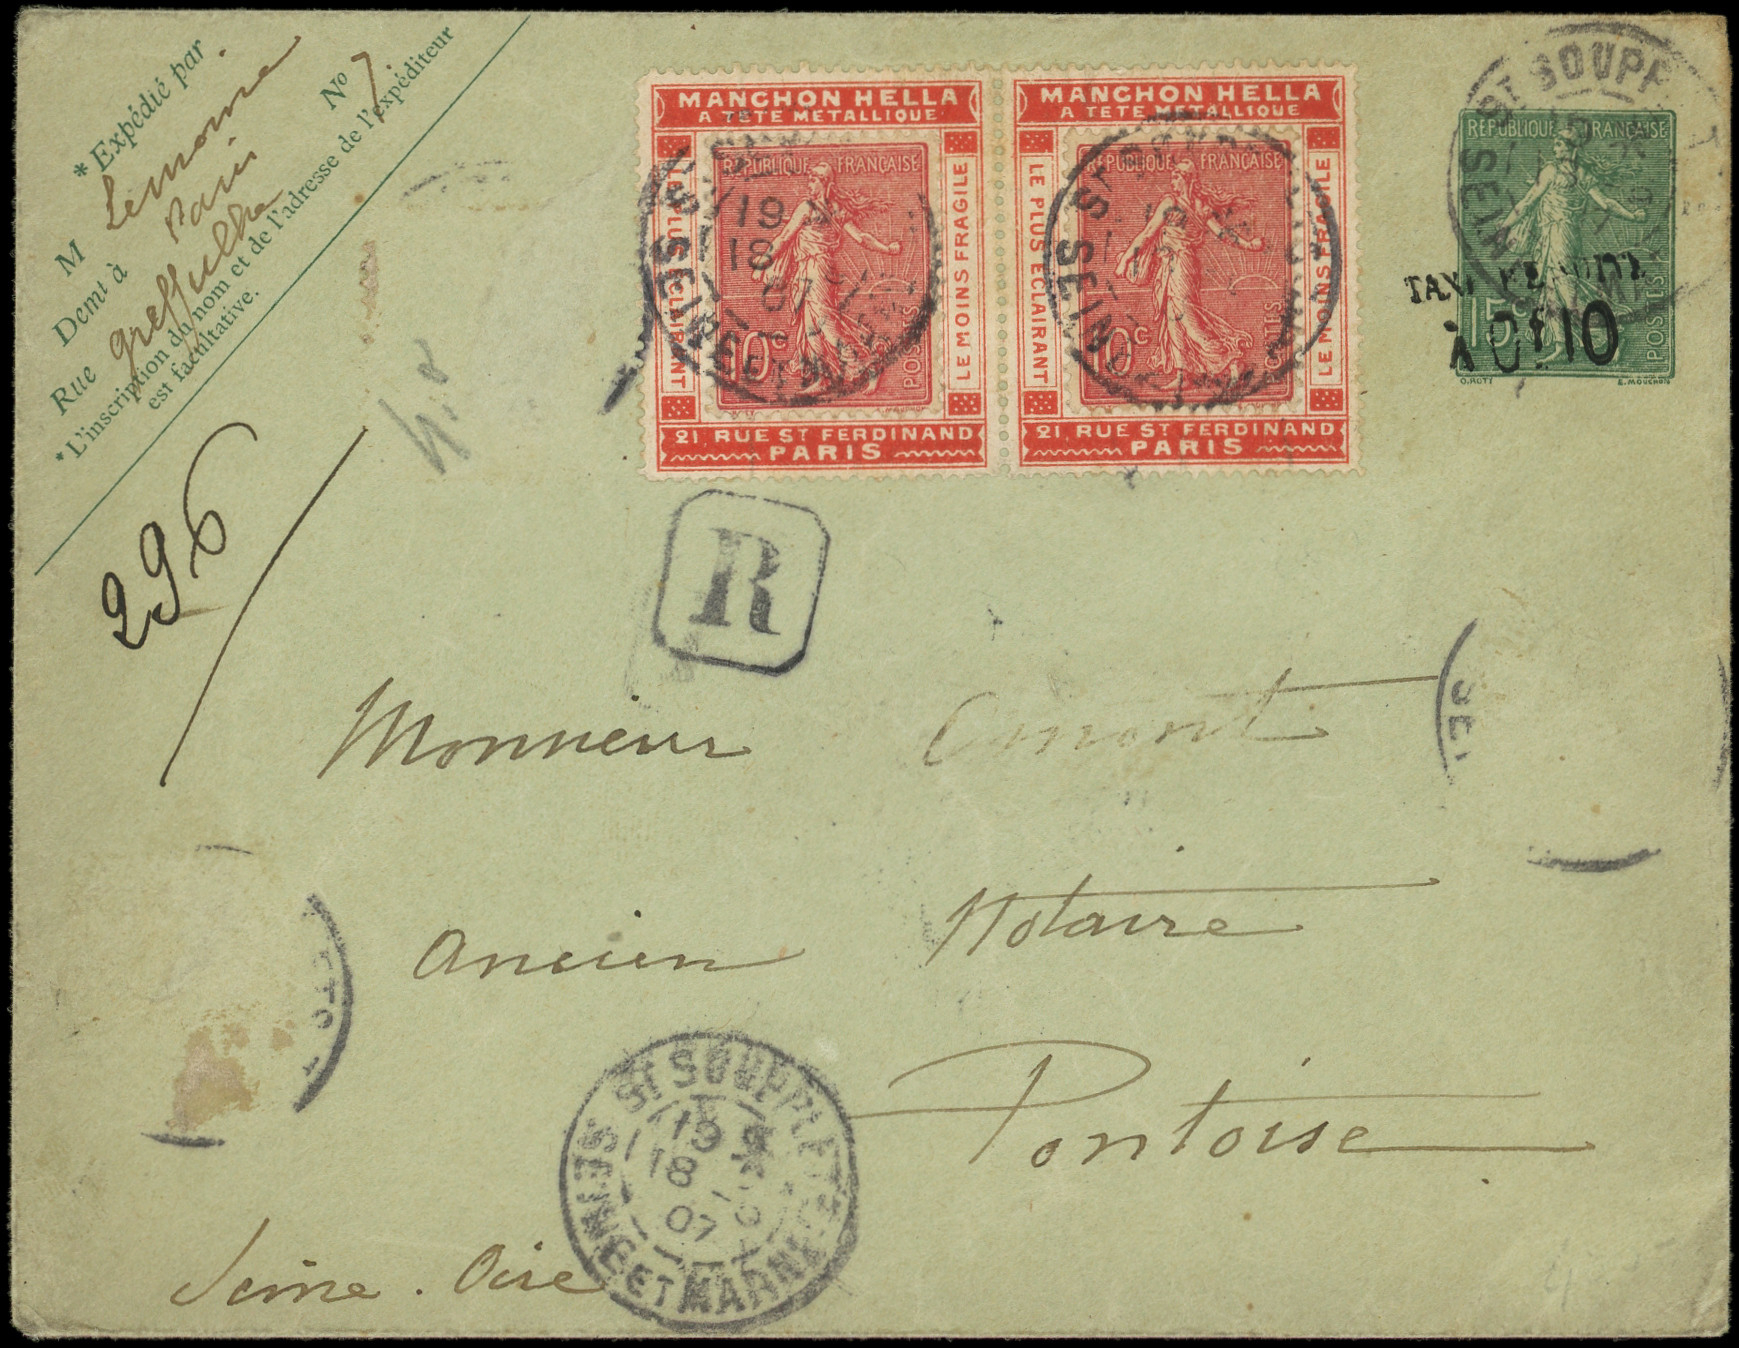 * Expédié par
M Lemoine
Demt à Paris
Rue Greffulhe No 7
*L'inscription du nom et de l'adresse de l'expéditeur
est facultative.
MANCHON HELLA
A TETE METALLIQUE
LE PLUS ECLAIRANT
REPUBLIQUE FRANÇAISE
10c
POSTES
LE MOINS FRAGILE
21, RUE ST FERDINAND
PARIS
MANCHON HELLA
A TETE METALLIQUE
LE PLUS ECLAIRANT
REPUBLIQUE FRANÇAISE
10c
POSTES
LE MOINS FRAGILE
21, RUE ST FERDINAND
PARIS
ST SOUPP
SEIN
REPUBLIQUE FRANÇAISE
TAXE REDUITE
A 0f 10
15c
POSTES
O. ROTY
E. MOUCHON
296
R
Monsieur
Ancien Notaire
Pontoise
Seine. Oise
ST SOUPPLETS
19
18 -9
07
SEINE ET MARNE